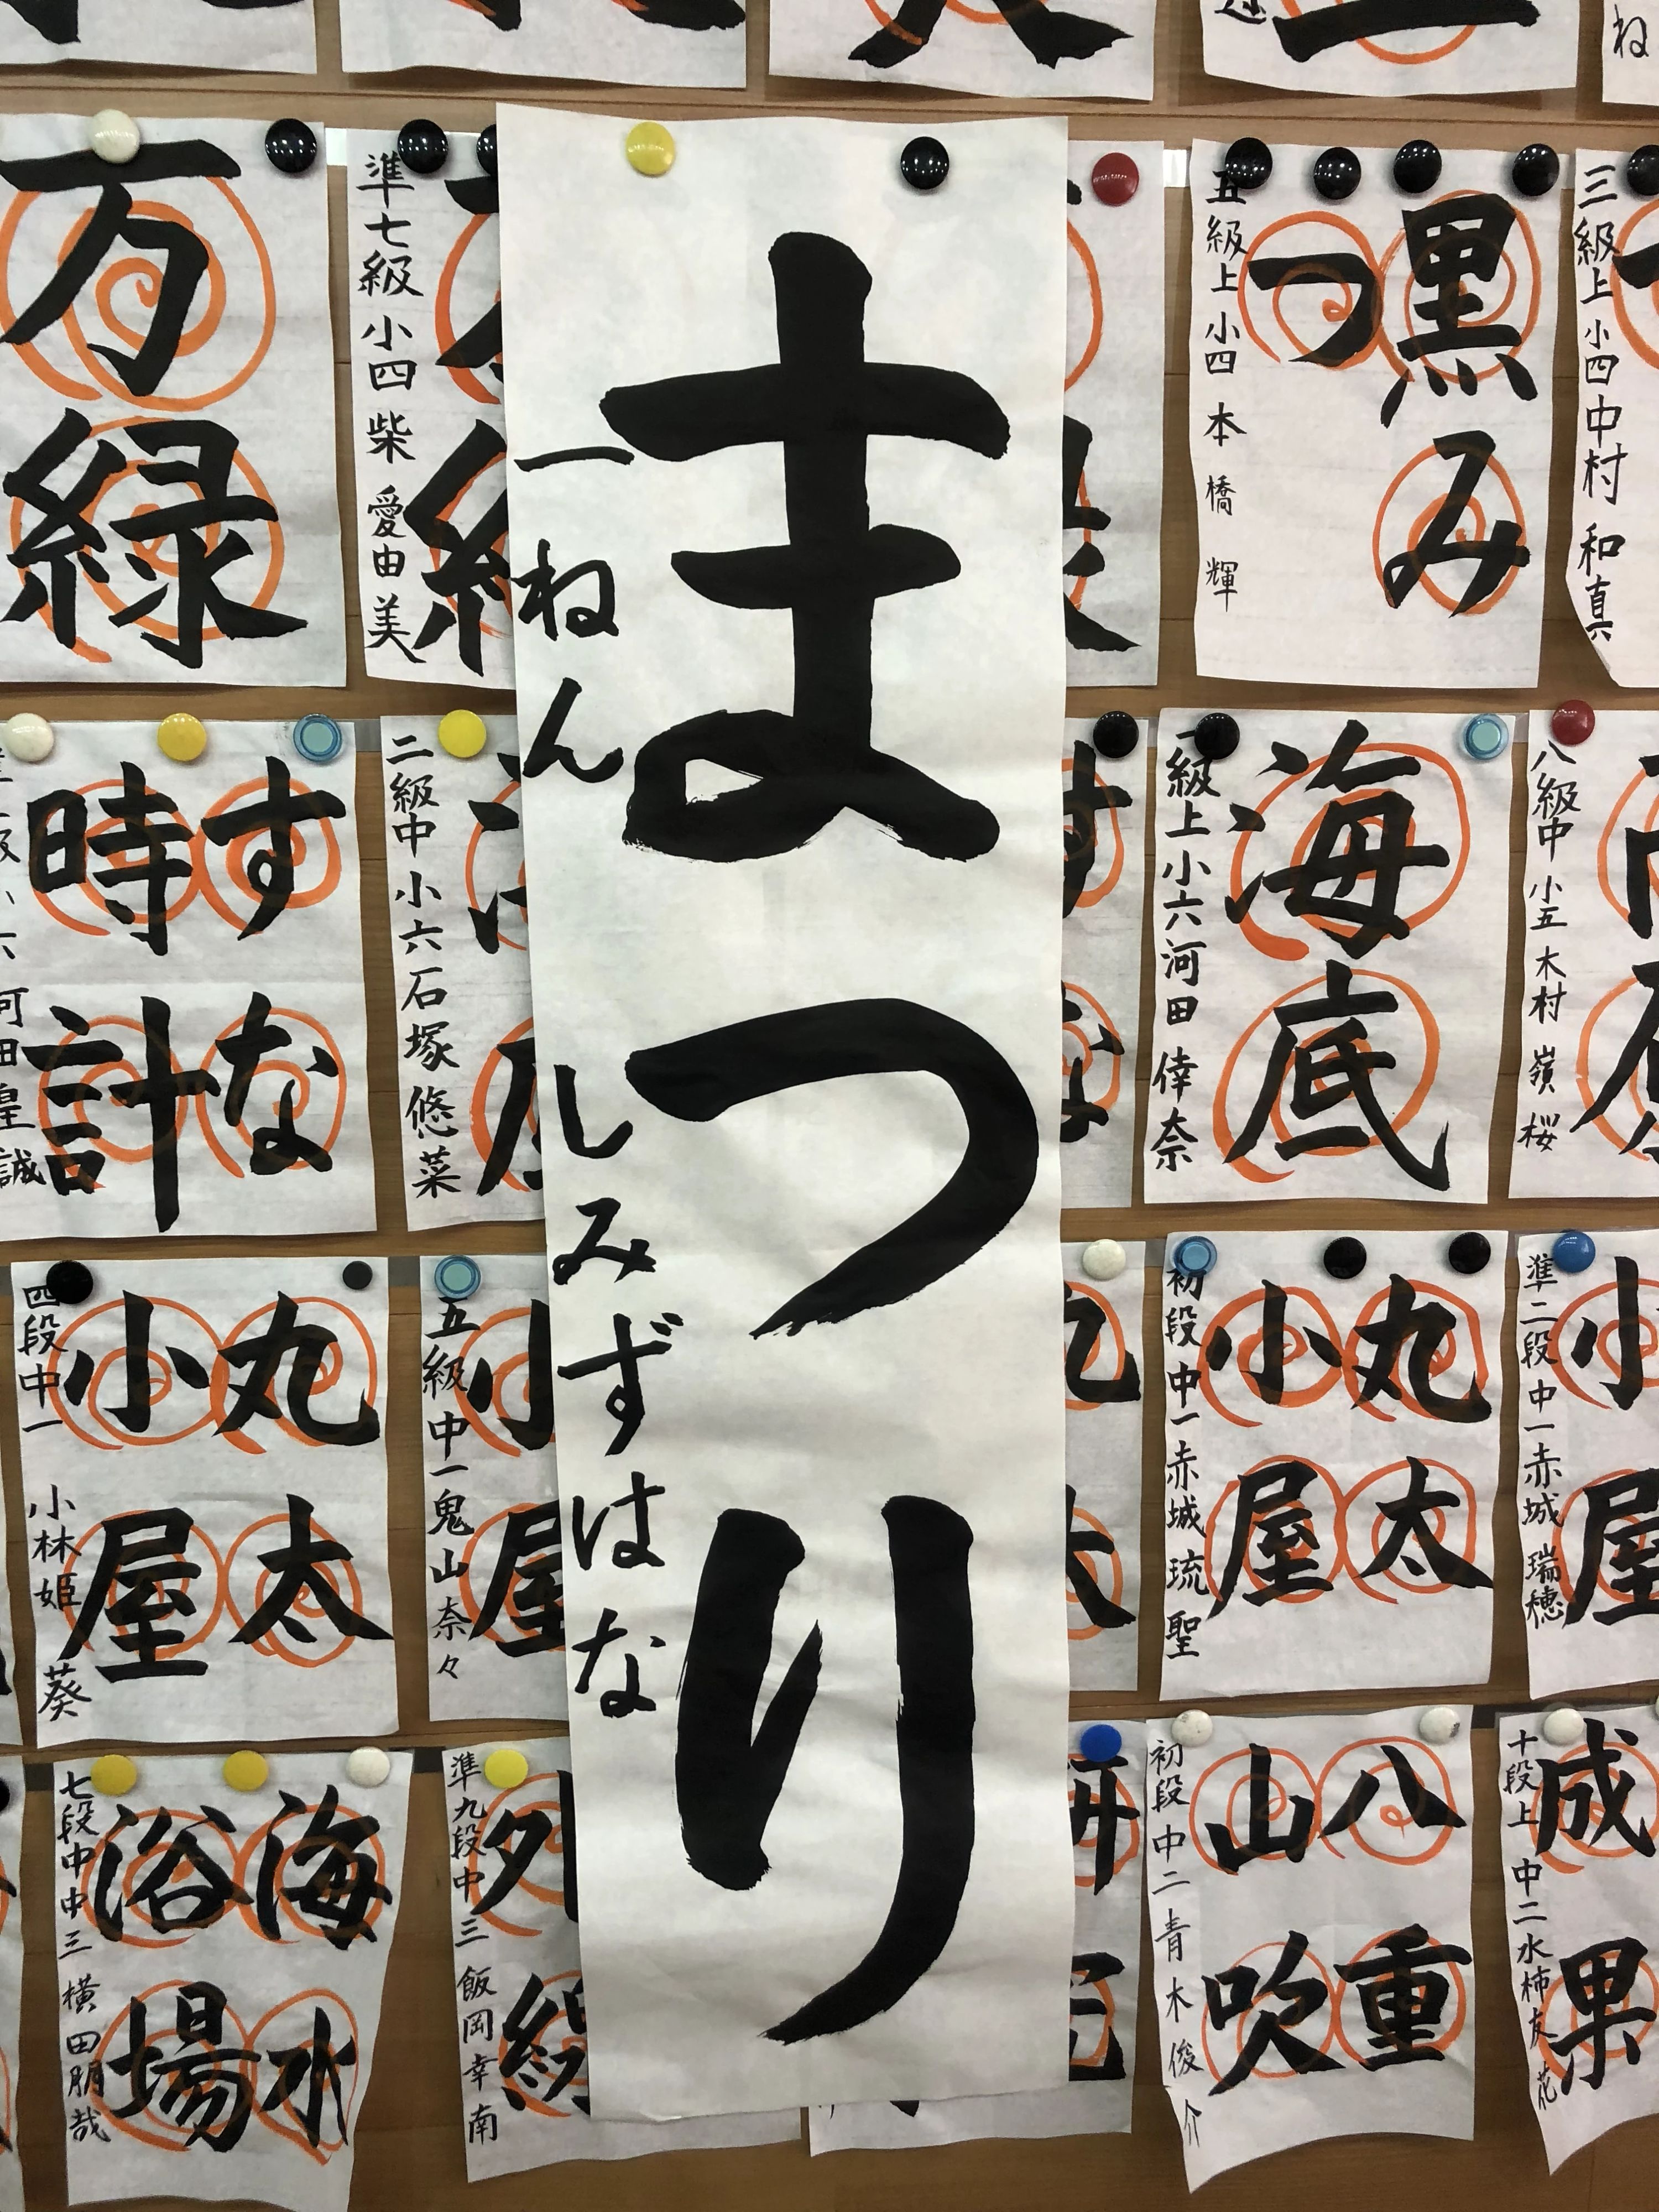 まつり
一ねん しみずはな
ね
万緑
準七級 小四 柴 愛由美
黒み
つ
五級上 小四 本橋 輝
三級上 小四 中村 和真
すな
時計
二級中 小六 石塚 悠菜
海底
級上 小六 河田 倖奈
八級中 小五 木村 嶺桜
丸太
小屋
四段 中一 小林 姫葵
五級 中一 鬼山 奈々
丸太
小屋
初段 中一 赤城 琉聖
小屋
準二段 中一 赤城 瑞穂
海水
浴場
七段中 中三 横田朋哉
準九段 中三 飯岡 幸南
八重
山吹
初段 中二 青木 俊介
成果
十段上 中二 水柿 友花